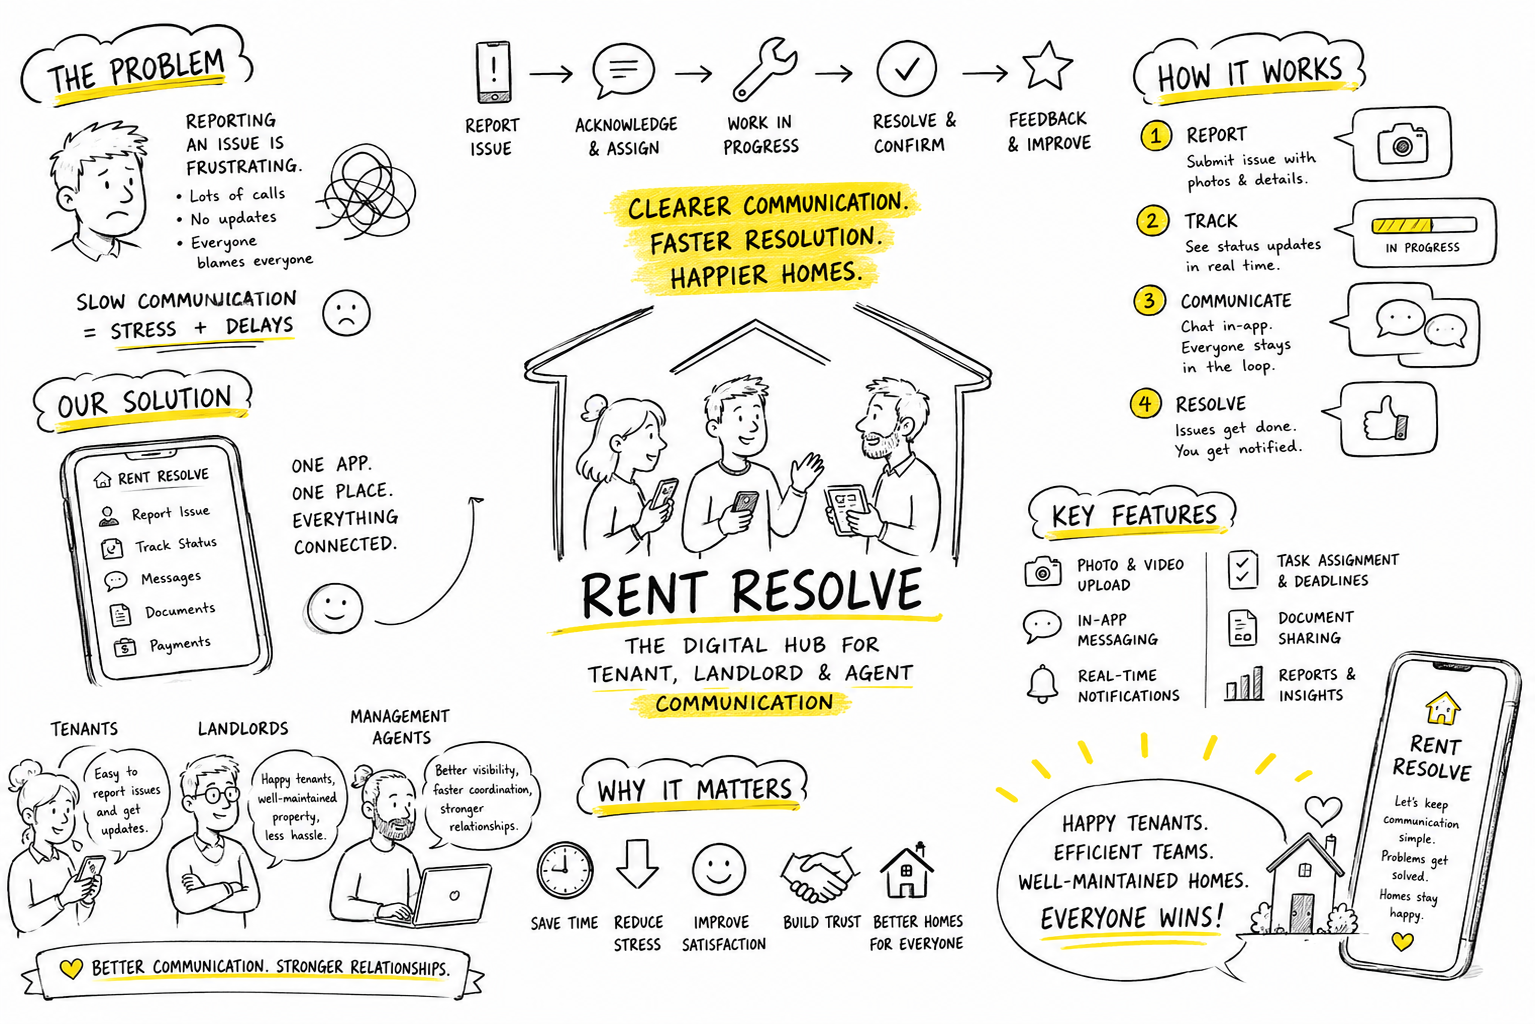 THE PROBLEM
REPORTING
AN ISSUE IS
FRUSTRATING.
• Lots of calls
• No updates
• Everyone
blames everyone
SLOW COMMUNICATION
= STRESS + DELAYS
REPORT
ISSUE
ACKNOWLEDGE
& ASSIGN
WORK IN
PROGRESS
RESOLVE &
CONFIRM
FEEDBACK
& IMPROVE
CLEARER COMMUNICATION.
FASTER RESOLUTION.
HAPPIER HOMES.
HOW IT WORKS
1 REPORT
Submit issue with
photos & details.
2 TRACK
See status updates
in real time.
IN PROGRESS
3 COMMUNICATE
Chat in-app.
Everyone stays
in the loop.
4 RESOLVE
Issues get done.
You get notified.
OUR SOLUTION
RENT RESOLVE
Report Issue
Track Status
Messages
Documents
$ Payments
ONE APP.
ONE PLACE.
EVERYTHING
CONNECTED.
RENT RESOLVE
THE DIGITAL HUB FOR
TENANT, LANDLORD & AGENT
COMMUNICATION
KEY FEATURES
PHOTO & VIDEO
UPLOAD
IN-APP
MESSAGING
REAL-TIME
NOTIFICATIONS
TASK ASSIGNMENT
& DEADLINES
DOCUMENT
SHARING
REPORTS &
INSIGHTS
TENANTS
Easy to
report issues
and get
updates.
LANDLORDS
Happy tenants,
well-maintained
property,
less hassle.
MANAGEMENT
AGENTS
Better visibility,
faster coordination,
stronger
relationships.
BETTER COMMUNICATION. STRONGER RELATIONSHIPS.
WHY IT MATTERS
SAVE TIME
REDUCE
STRESS
IMPROVE
SATISFACTION
BUILD TRUST
BETTER HOMES
FOR EVERYONE
HAPPY TENANTS.
EFFICIENT TEAMS.
WELL-MAINTAINED HOMES.
EVERYONE WINS!
RENT
RESOLVE
Let's keep
communication
simple.
Problems get
solved.
Homes stay
happy.